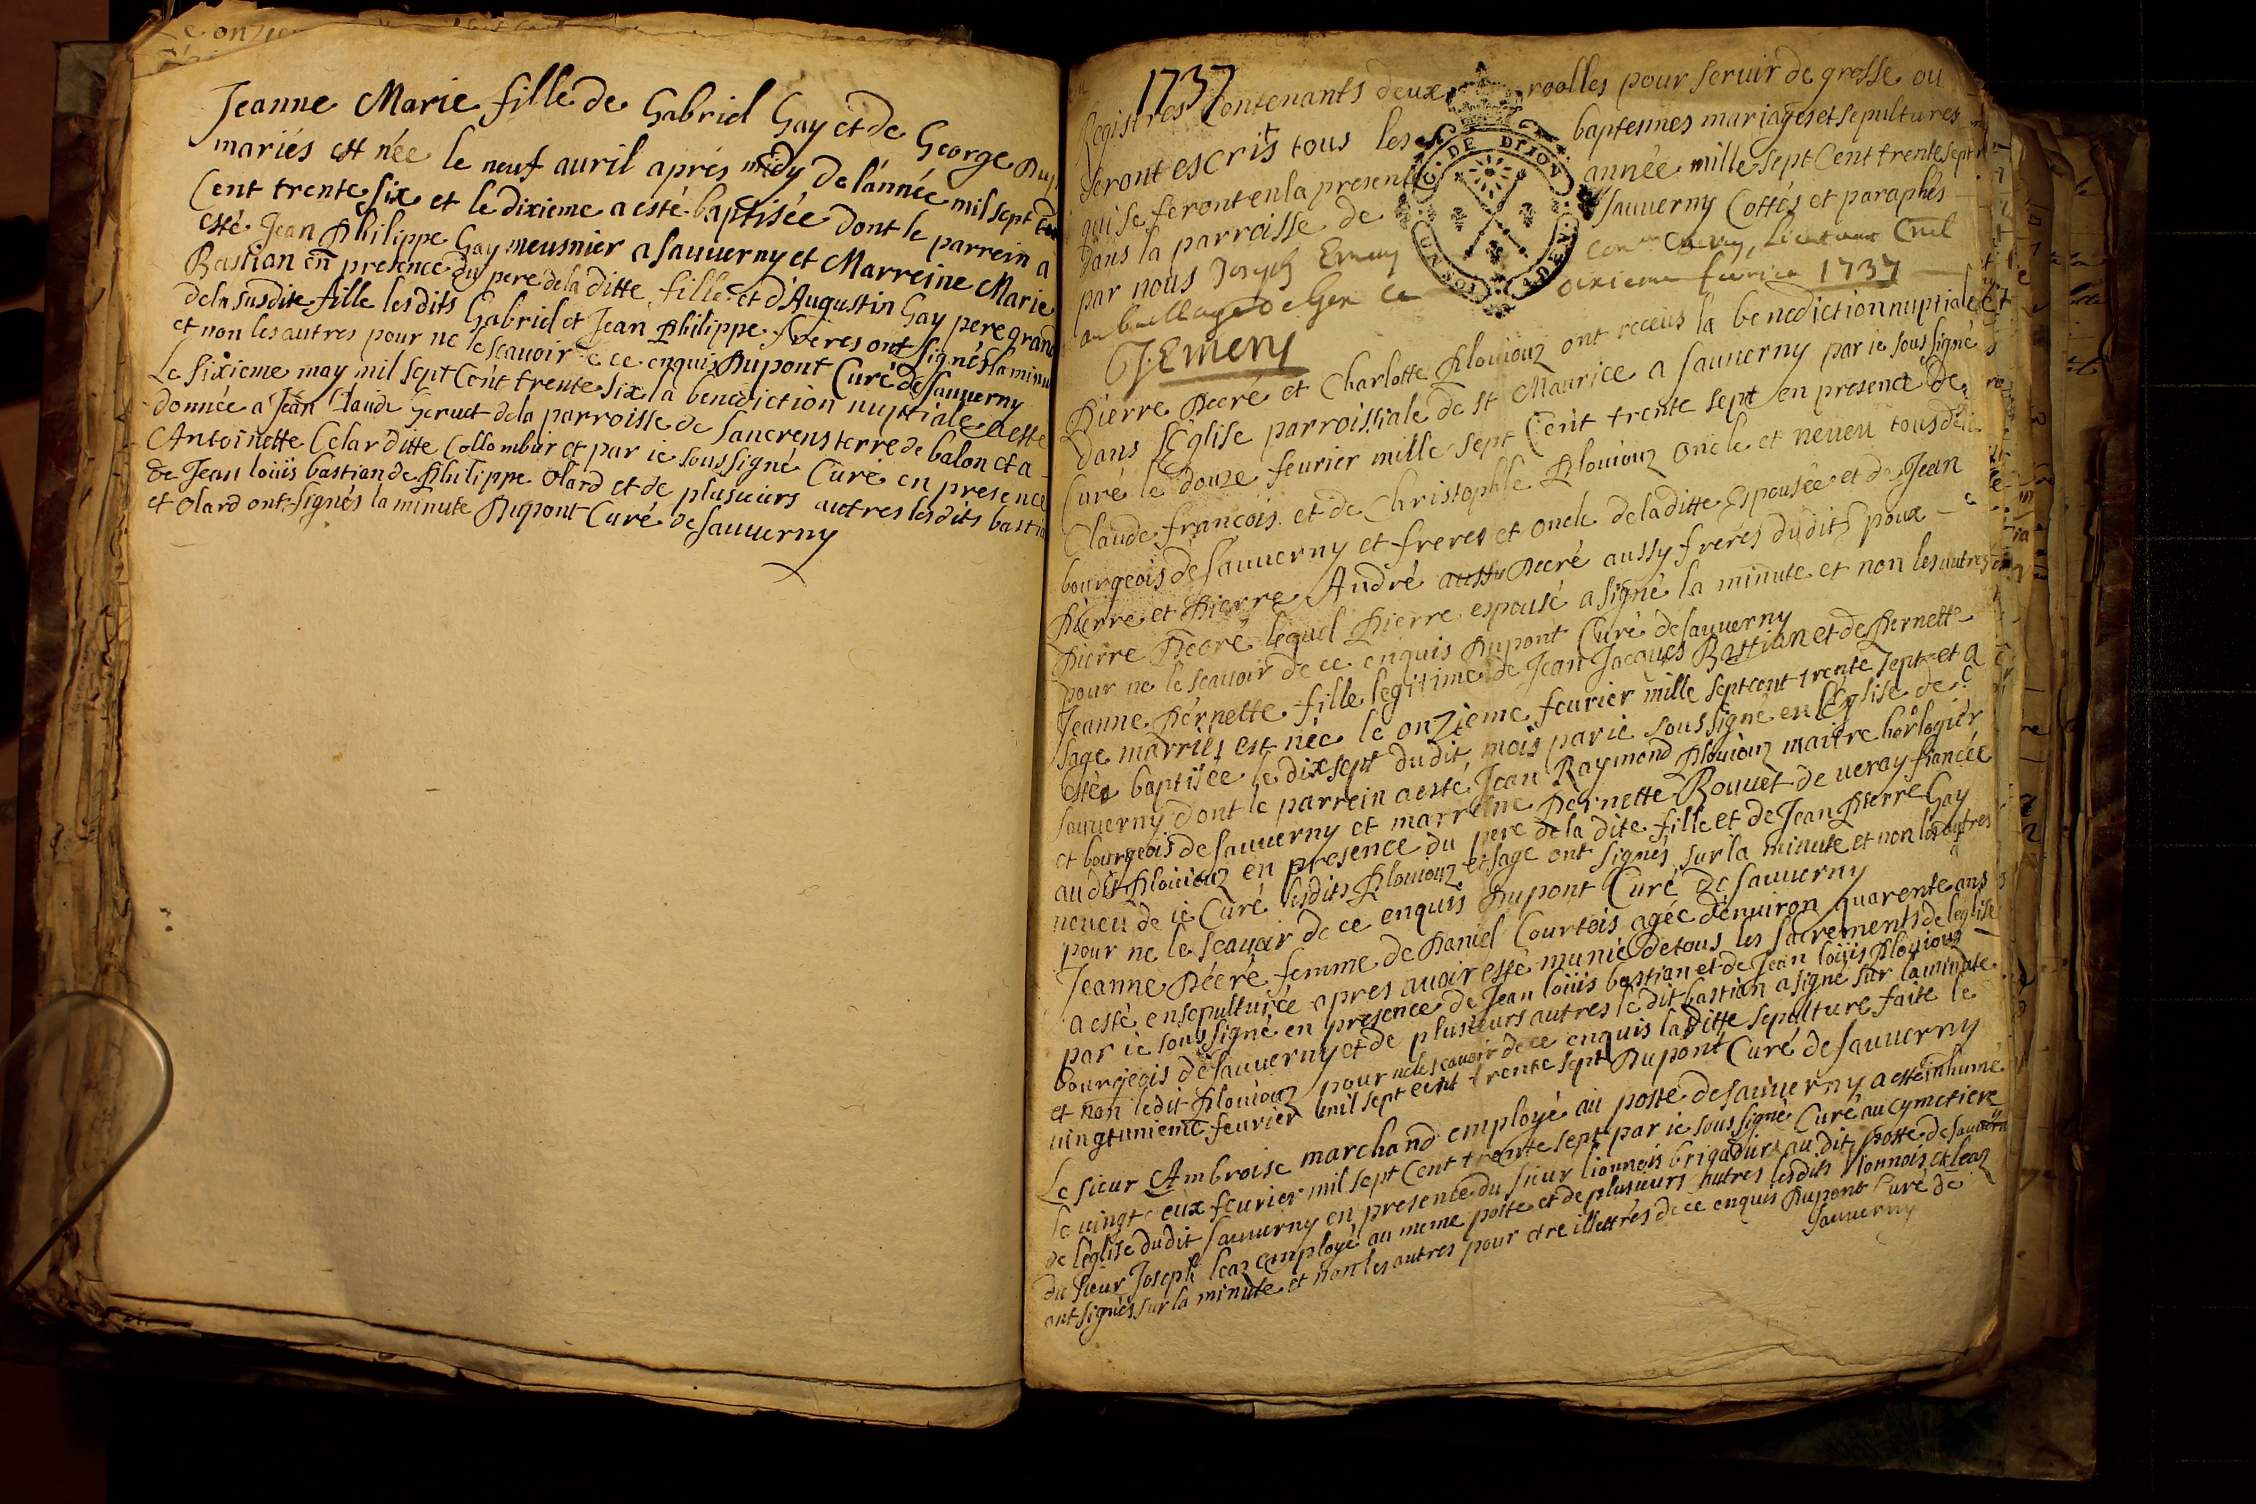 Jeanne Marie fille de Gabriel Gay et de George
mariés est née le neuf auril aprés midy de lannée mil sept
Cent trente six et le dixieme a esté baptisée dont le parrein a
esté Jean Philippe Gay meusnier a Sauuerny et Marreine Marie
Bastian en presence du pere de la ditte fille et d'Augustin Gay pere grand
de la susdite fille lesdits Gabriel et Jean Philippe freres ont signés la minu
et non les autres pour ne le scauoir de ce enquis Dupont Curé de Sauuerny
Le sixieme may mil sept Cent trente six la benediction nuptiale a esté
donnée a Jean Claude de la parroisse de Sancrens terre de balon et a
Antoinette Celar ditte Collombier et par ie soussigné Curé en presence
de Jean loüis bastian de Philippe Olard et de plusieurs autres lesdits bastia
et Olard ont signés la minute Dupont Curé de Sauuerny
1737
Registres Contenants deux roolles pour seruir de grosse ou
seront escrits tous les baptesmes mariages et sepultures
qui se feront en la presente année mille sept Cent trente sept
dans la parroisse de Sauuerny Cottés et paraphés
par nous Joseph Emery Lieutenant Ciuil
au bailliage de Gex ce dixieme feurier 1737
C. DE DIJON
J. Emery
Pierre Decré et Charlotte Plouiouz ont receus la benediction nuptiale
dans l'Eglise parroissiale de St Maurice a Sauuerny par ie sous signé
Curé le douze feurier mille sept Cent trente sept en presence de
Claude francois et de Christophle Plouiouz oncle et neueu tous deux
bourgeois de Sauuerny et freres et oncle de la ditte Espousée et de Jean
Pierre et Pierre André Decré aussy freres dudit Epoux
Pierre Decré lequel Pierre espousé a signé la minute et non les autres
pour ne le scauoir de ce enquis Dupont Curé de Sauuerny
Jeanne Pernette fille legitime de Jean Jacques Bastian et de Pernette
Sage marriés est née le onzieme feurier mille sept cent trente sept et a
estée baptisée le dix sept dudit mois par ie soussigné en l'Eglise de
Sauuerny dont le parrein a esté Jean Raymond Plouiouz maitre horlogier
et bourgeois de Sauuerny et marreine Pernette Rouuet de ueray fiancée
au dit Plouiouz en presence du pere de la dite fille et de Jean Pierre Gay
neueu de ie Curé lesdits Plouiouz et Sage ont signés sur la minute et non les autres
pour ne le scauoir de ce enquis Dupont Curé de Sauuerny
Jeanne Décré femme de Daniel Courtois agée d'enuiron quarente ans
a esté ensepulturée apres auoir esté munie de tous les sacrements de leglise
par ie sous signé en presence de Jean loüis bastian et de Jean loüis Plouiouz
bourgeois de Sauuerny et de plusieurs autres le dit bastian a signé sur la minute
et non ledit Plouiouz pour ne le scauoir de ce enquis la ditte sepulture faite le
uingtunieme feurier mil sept cent trente sept Dupont Curé de Sauuerny
Le sieur Ambroise marchand employé au poste de Sauuerny a esté inhumé
le uingt eux feurier mil sept Cent trente sept par ie sous signé Curé au cymetiere
de l'église dudit Sauuerny en presence du sieur lionnois brigadier au dit poste de Sauuerny
du sieur Joseph leaz employé au meme poste et de plusieurs autres lesdits lionnois et leaz
ont signés sur la minute et non les autres pour etre illettrés de ce enquis Dupont Curé de
Sauuerny